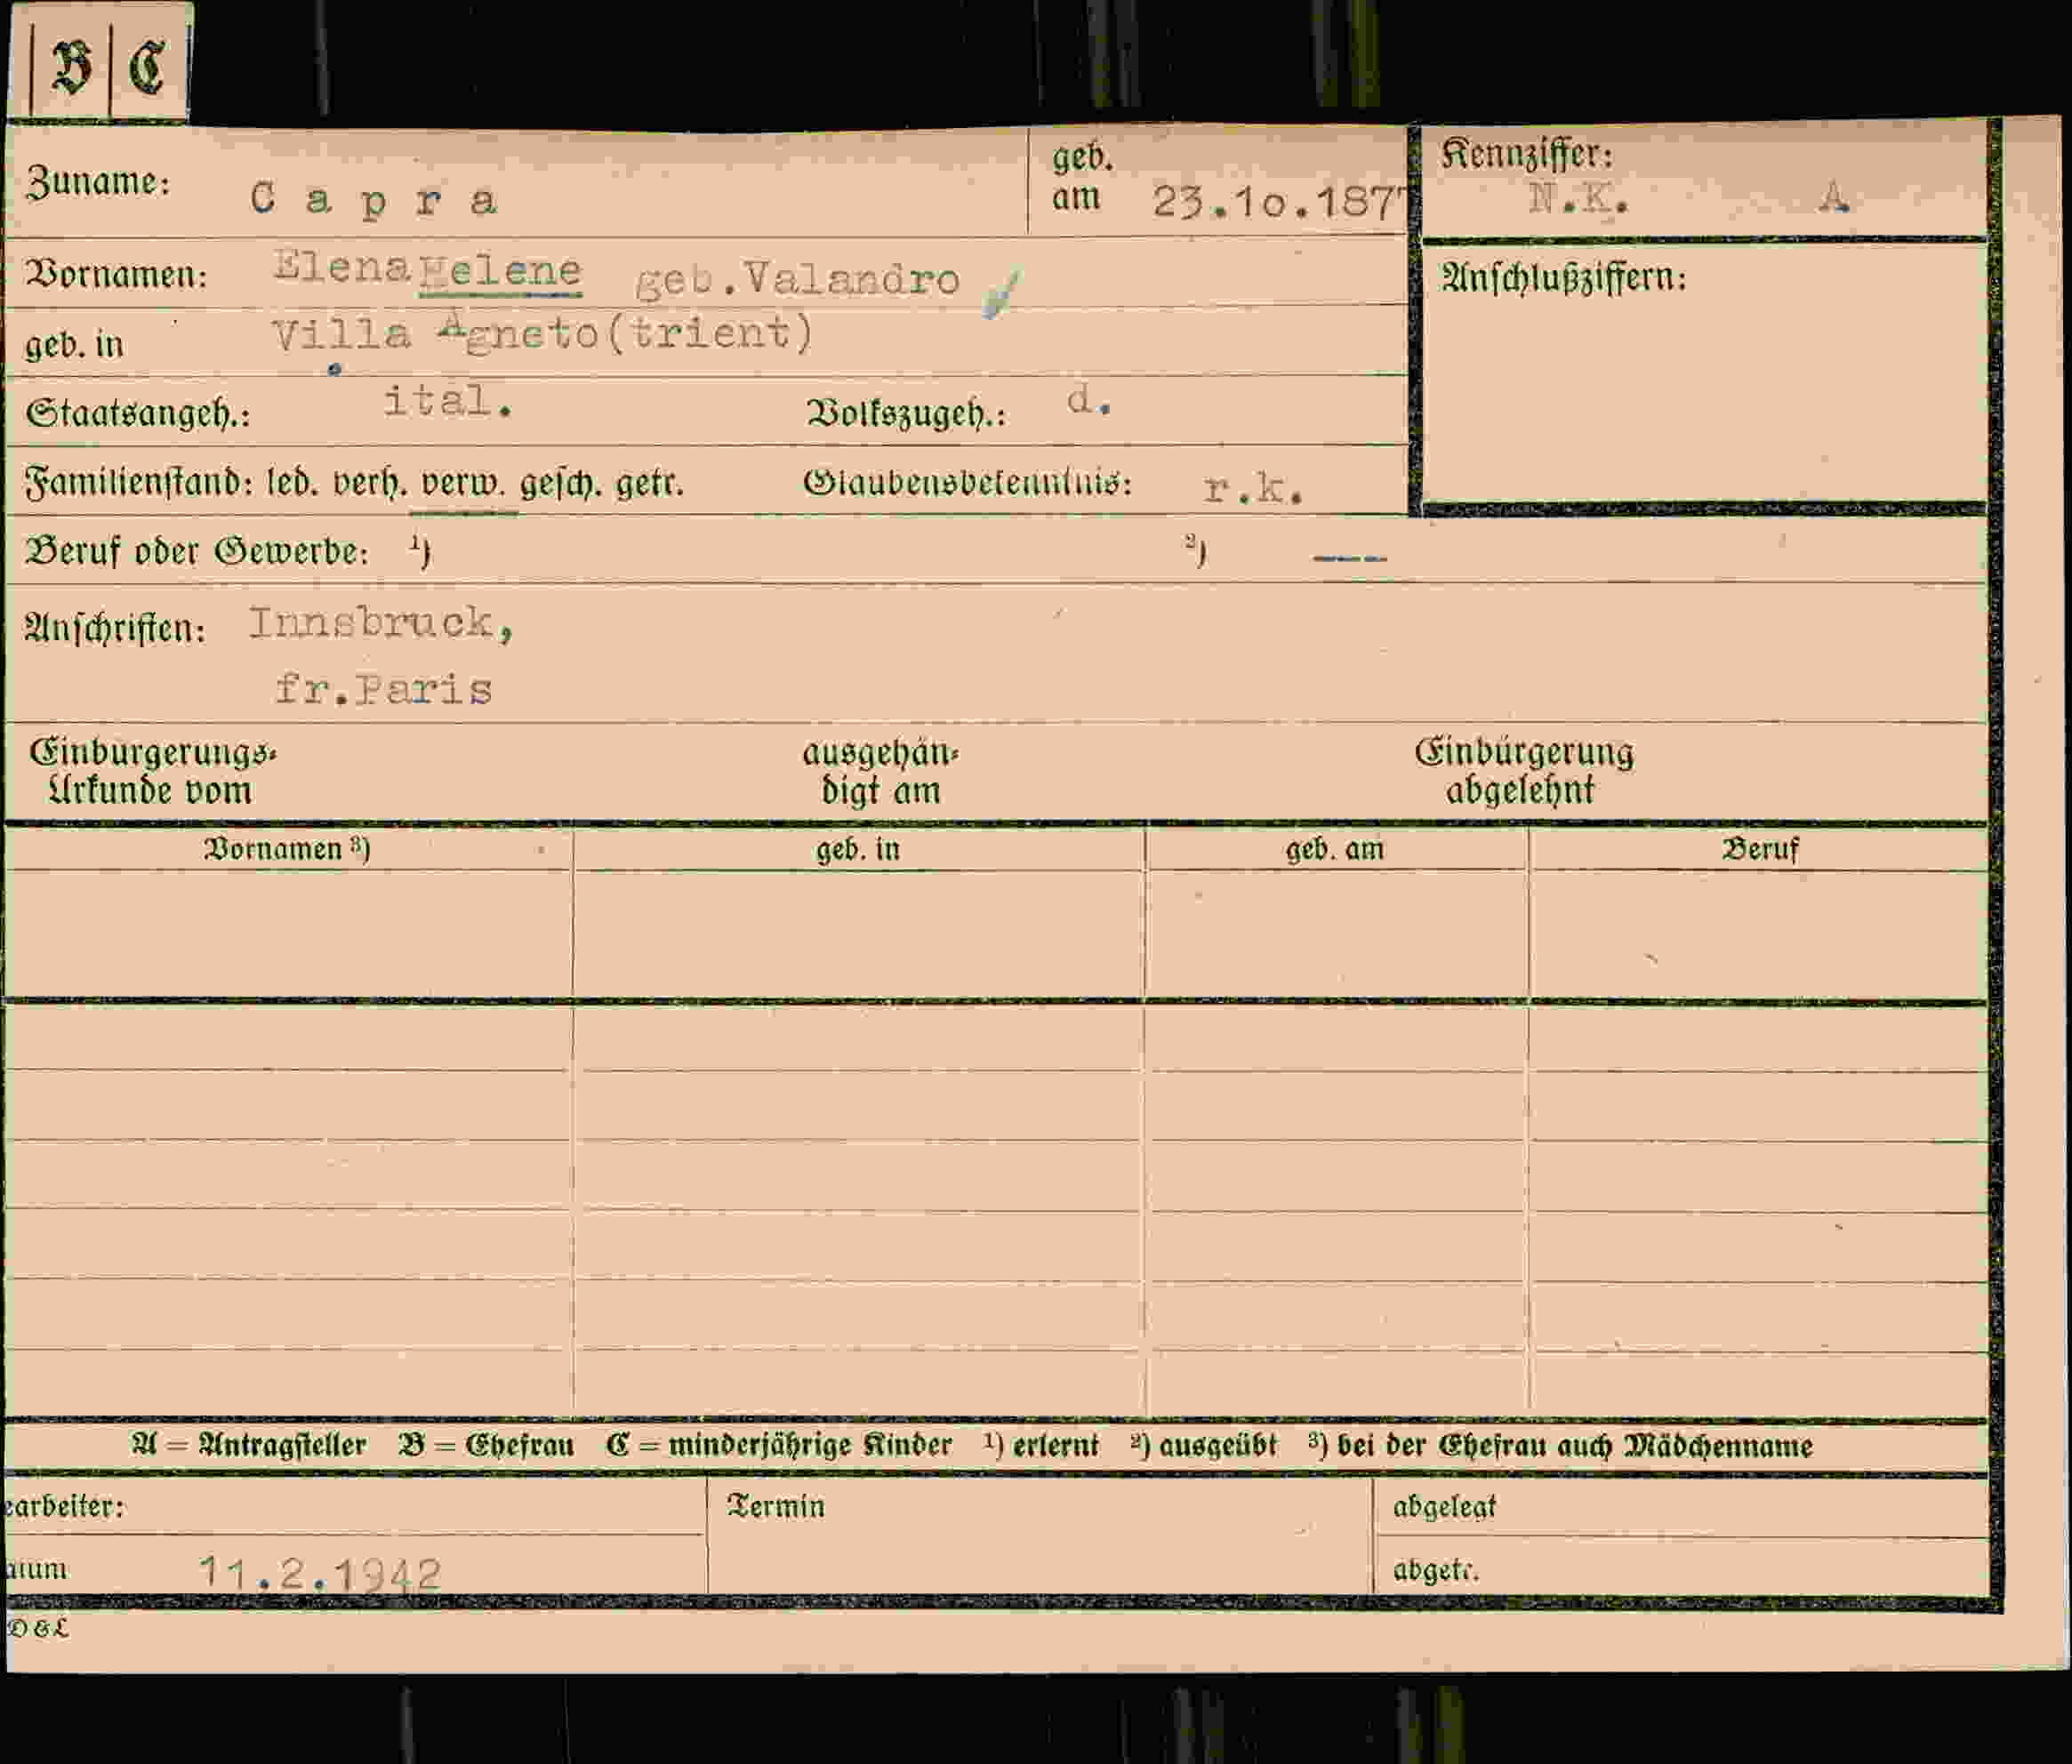 B C
Zuname: Capra geb. am 23.10.187
Kennziffer: N.K. A
Vornamen: Elena Helene geb.Valandro
Anschlußziffern:
geb. in Villa Agneto(trient)
Staatsangeh.: ital. Volkszugeh.: d.
Familienstand: led. verh. verw. gesch. getr. Glaubensbekenntnis: r.k.
Beruf oder Gewerbe: 1) 2) ---
Anschriften: Innsbruck,
fr.Paris
Einbürgerungs- ausgehän- Einbürgerung
Urkunde vom digt am abgelehnt
Vornamen 3) geb. in geb. am Beruf
A = Antragsteller B = Ehefrau C = minderjährige Kinder 1) erlernt 2) ausgeübt 3) bei der Ehefrau auch Mädchenname
earbeiter: Termin abgelegt
atum 11.2.1942 abgetr.
D&L